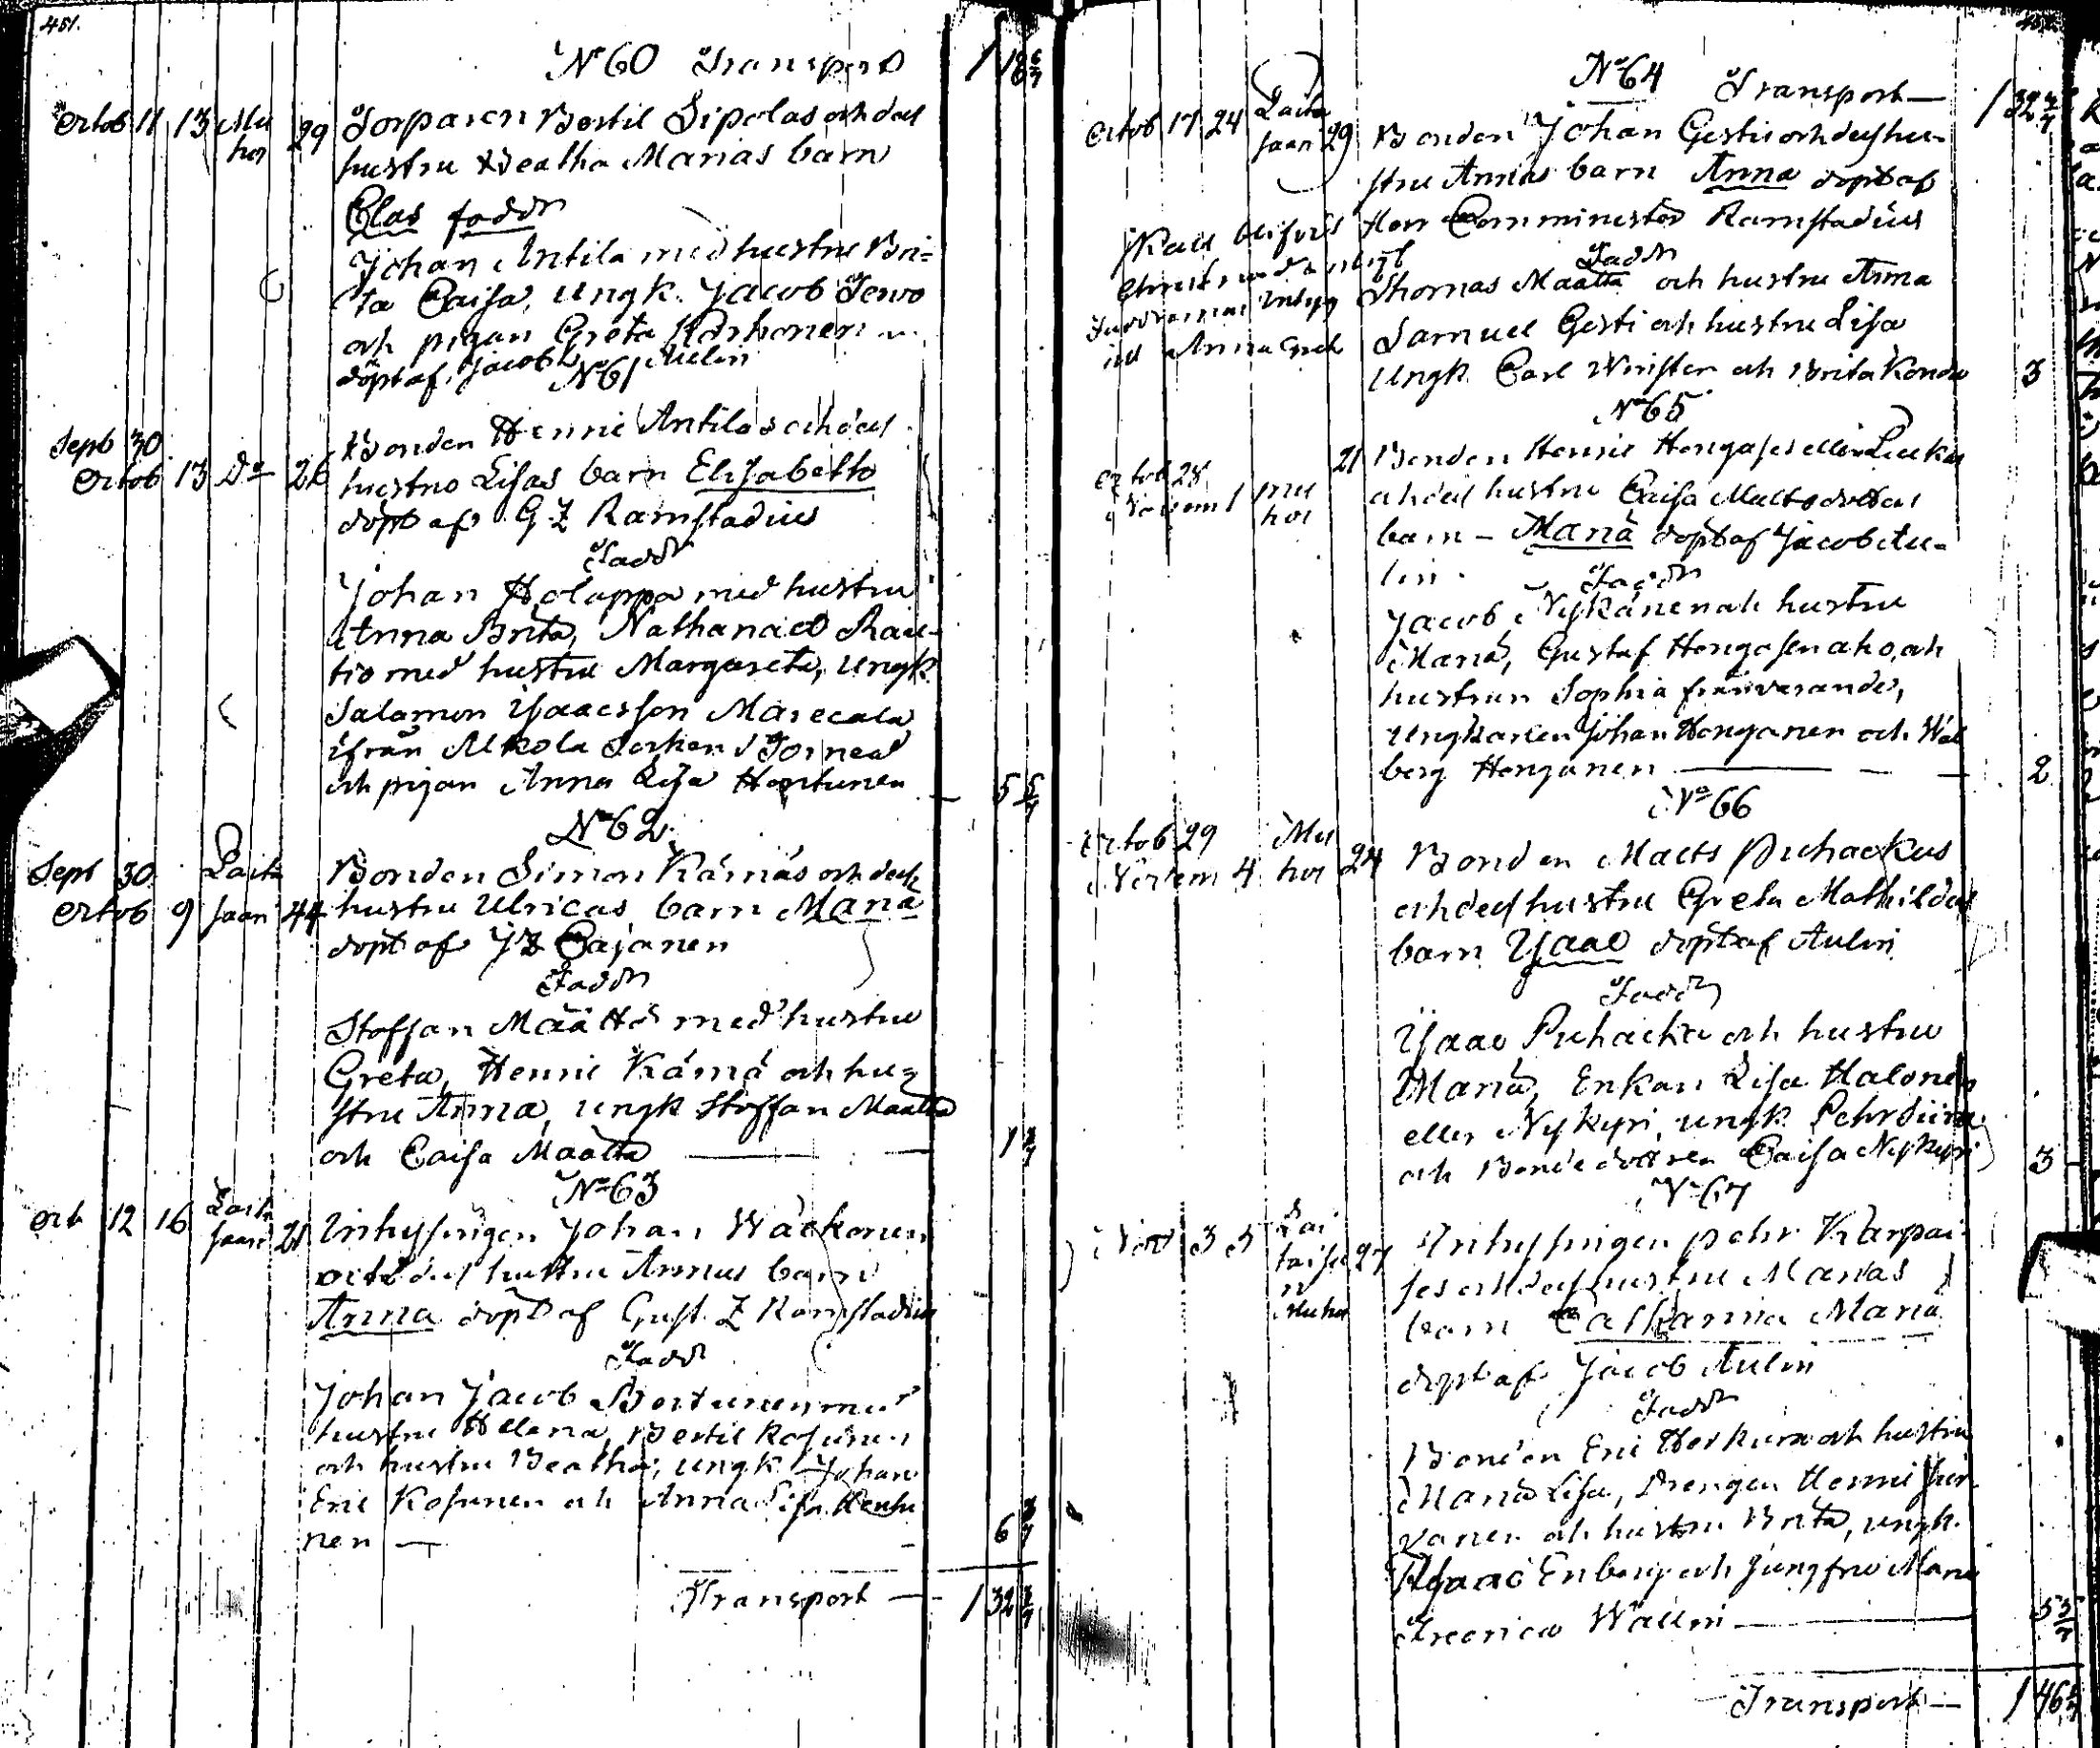 451.
No 60 Transport 1 18 6/7
Octob 11 13 Mu 29 Torparen Bertil Sipolas och dess
hos hustru Beatha Marias barn
Clas fadd
Johan Antila med hustru Bri-
ta Caisa, ungk. Jacob Terwo
och pigan Greta Karhonen
döpt af Jacob Aulin
No 61
Sept 30 Bonden Henric Antilas och dess
Octob 13 Do 26 hustrus Lisas barn Elisabetto
döpt af G Z Ramstadius
Fadd
Johan Holappa med hustru
Anna Brita, Nathanael Rau-
tio med hustru Margareta, ungk
Salamon Isaacsson Marecala
ifrån Alkola Sorken i Torneå
och pigan Anna Lisa Hontunen 5 5/7
No 62
Sept 30 Laita Bonden Simon Kämäs och dess
Octob 9 saari 44 hustru Ulricas barn Maria
döpt af J Z Cajanen
Fadd
Stoffan Määttä med hustru
Greta, Henric Kämä och hu-
stru Anna, ungk Stoffan Maatta
och Caisa Maatta
No 63
Oct 12 16 Laita
saari 21 Inhysingen Johan Wäckonen
och dess hustru Annas barn
Anna döpt af Gust. Z Ramstadius
Fadd
Johan Jacob Bortunen med
hustru Helena, Bertil Kosunen
och hustru Beatha, ungk. Johan
Eric Kosunen och Anna Lisa
nen 6
Transport 1 32 3/7
No 64
Transport 1 32 3/7
Octob 17 24 Laita
saari 29 Bonden Johan Gestis och dess hu-
stru Annas barn Anna döpt af
Herr Comminister Ramstadius
Fadd
Thomas Maatta och hustru Anna
Samuel Gesti och hustru Lisa
Ungk Carl Winsten och Brita 3
No 65
Octob 28 21 Bonden Henric Hongases eller
Novem 1 Mu hos och dess hustru Caisa Matsdotters
barn - Maria döpt af Jacob Au-
lin.
Fadd
Jacob Nykänen och hustru
Maria, Gustaf Hongasenaho, och
hustrun Sophia frånvarande,
Ungkarlen Johan Honganen och Wal
borg Honganen 2
No 66
Octob 29 Mu
Novem 4 hos 24 Bonden Matts Puhackas
och dess hustru Greta Mathildas
barn Isaac döpt af Aulin
Fadd
Isaac Puhacka och hustru
Maria, Enkan Lisa Halonen
eller Nykyri, ungk. Pehr
och Bonde dottren Caisa Nykyri 3
No 67
Nov 3 5 Lai
taisa 27 Inhysingen Pehr Karpai-
n
Muhos ses och dess hustru Marias
barn Catharina Maria
döpt af Jacob Aulin
Fadd
Bonden Eric Horkunen och hustru
Maria Lisa, Drengen Henric
vanen och hustru Brita, ungk.
Isaac Enberg och Jungfru Maria
Fredrica Wallin 5 5/7
Transport 1 46